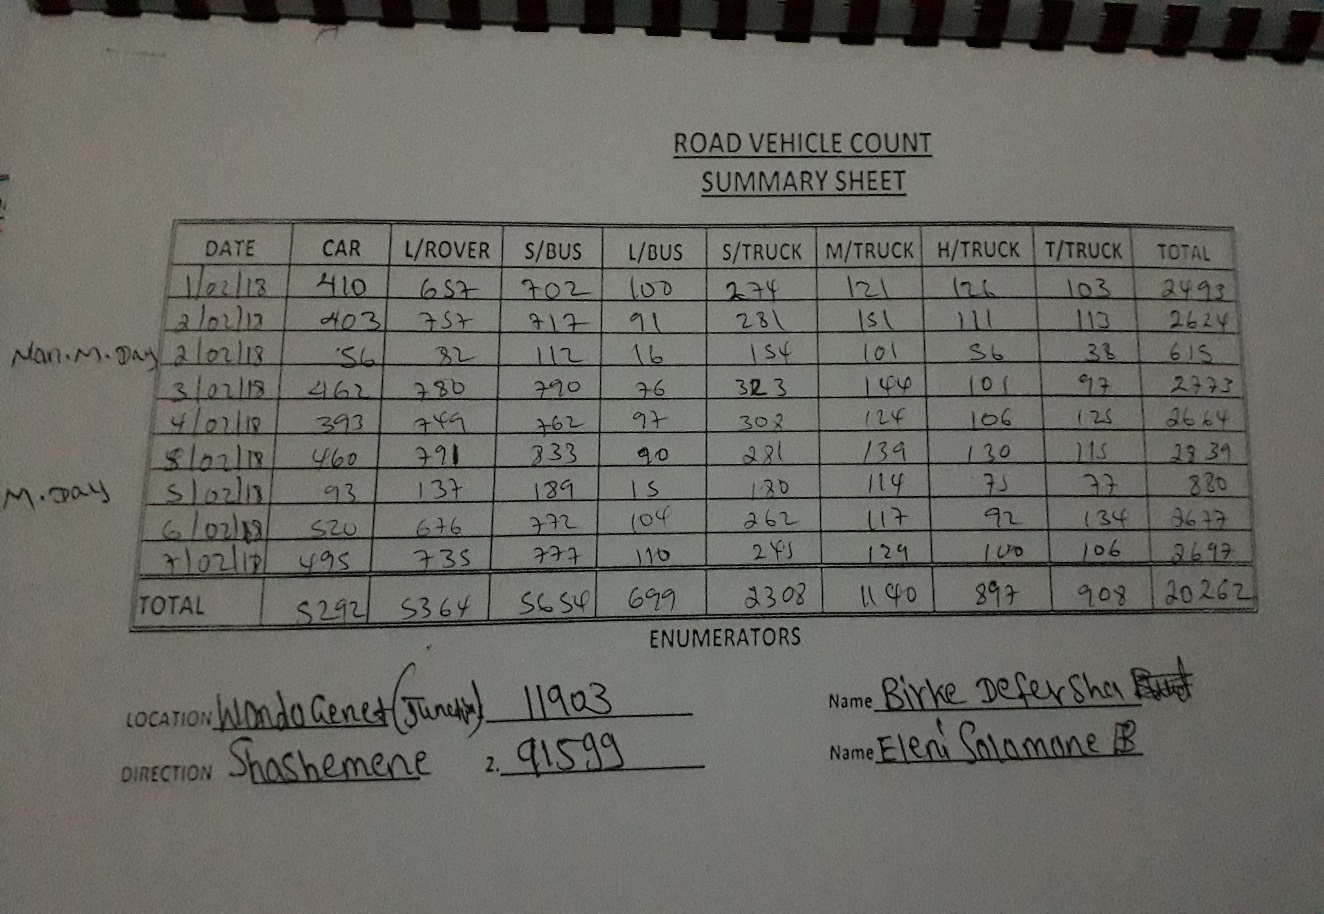 ROAD VEHICLE COUNT
SUMMARY SHEET
DATE CAR L/ROVER S/BUS L/BUS S/TRUCK M/TRUCK H/TRUCK T/TRUCK TOTAL
1/02/18 410 657 702 100 274 121 126 103 2493
2/02/18 403 757 717 91 281 151 111 113 2624
Nan.M.Day 2/02/18 56 82 112 16 154 101 56 38 615
3/02/18 462 780 790 76 323 144 101 97 2773
4/02/18 393 749 762 97 308 124 106 125 2664
5/02/18 460 791 833 90 281 139 130 115 2839
M.Day 5/02/18 93 137 189 15 180 114 75 77 880
6/02/18 520 676 772 104 262 117 92 134 2677
7/02/18 495 735 777 110 245 129 100 106 2697
TOTAL 5292 5364 5654 699 2308 1140 897 908 20262
ENUMERATORS
LOCATION Wondo Genet (Junction) 11903 Name Birke Defersha
DIRECTION Shashemene 2. 91599 Name Eleni Solamone